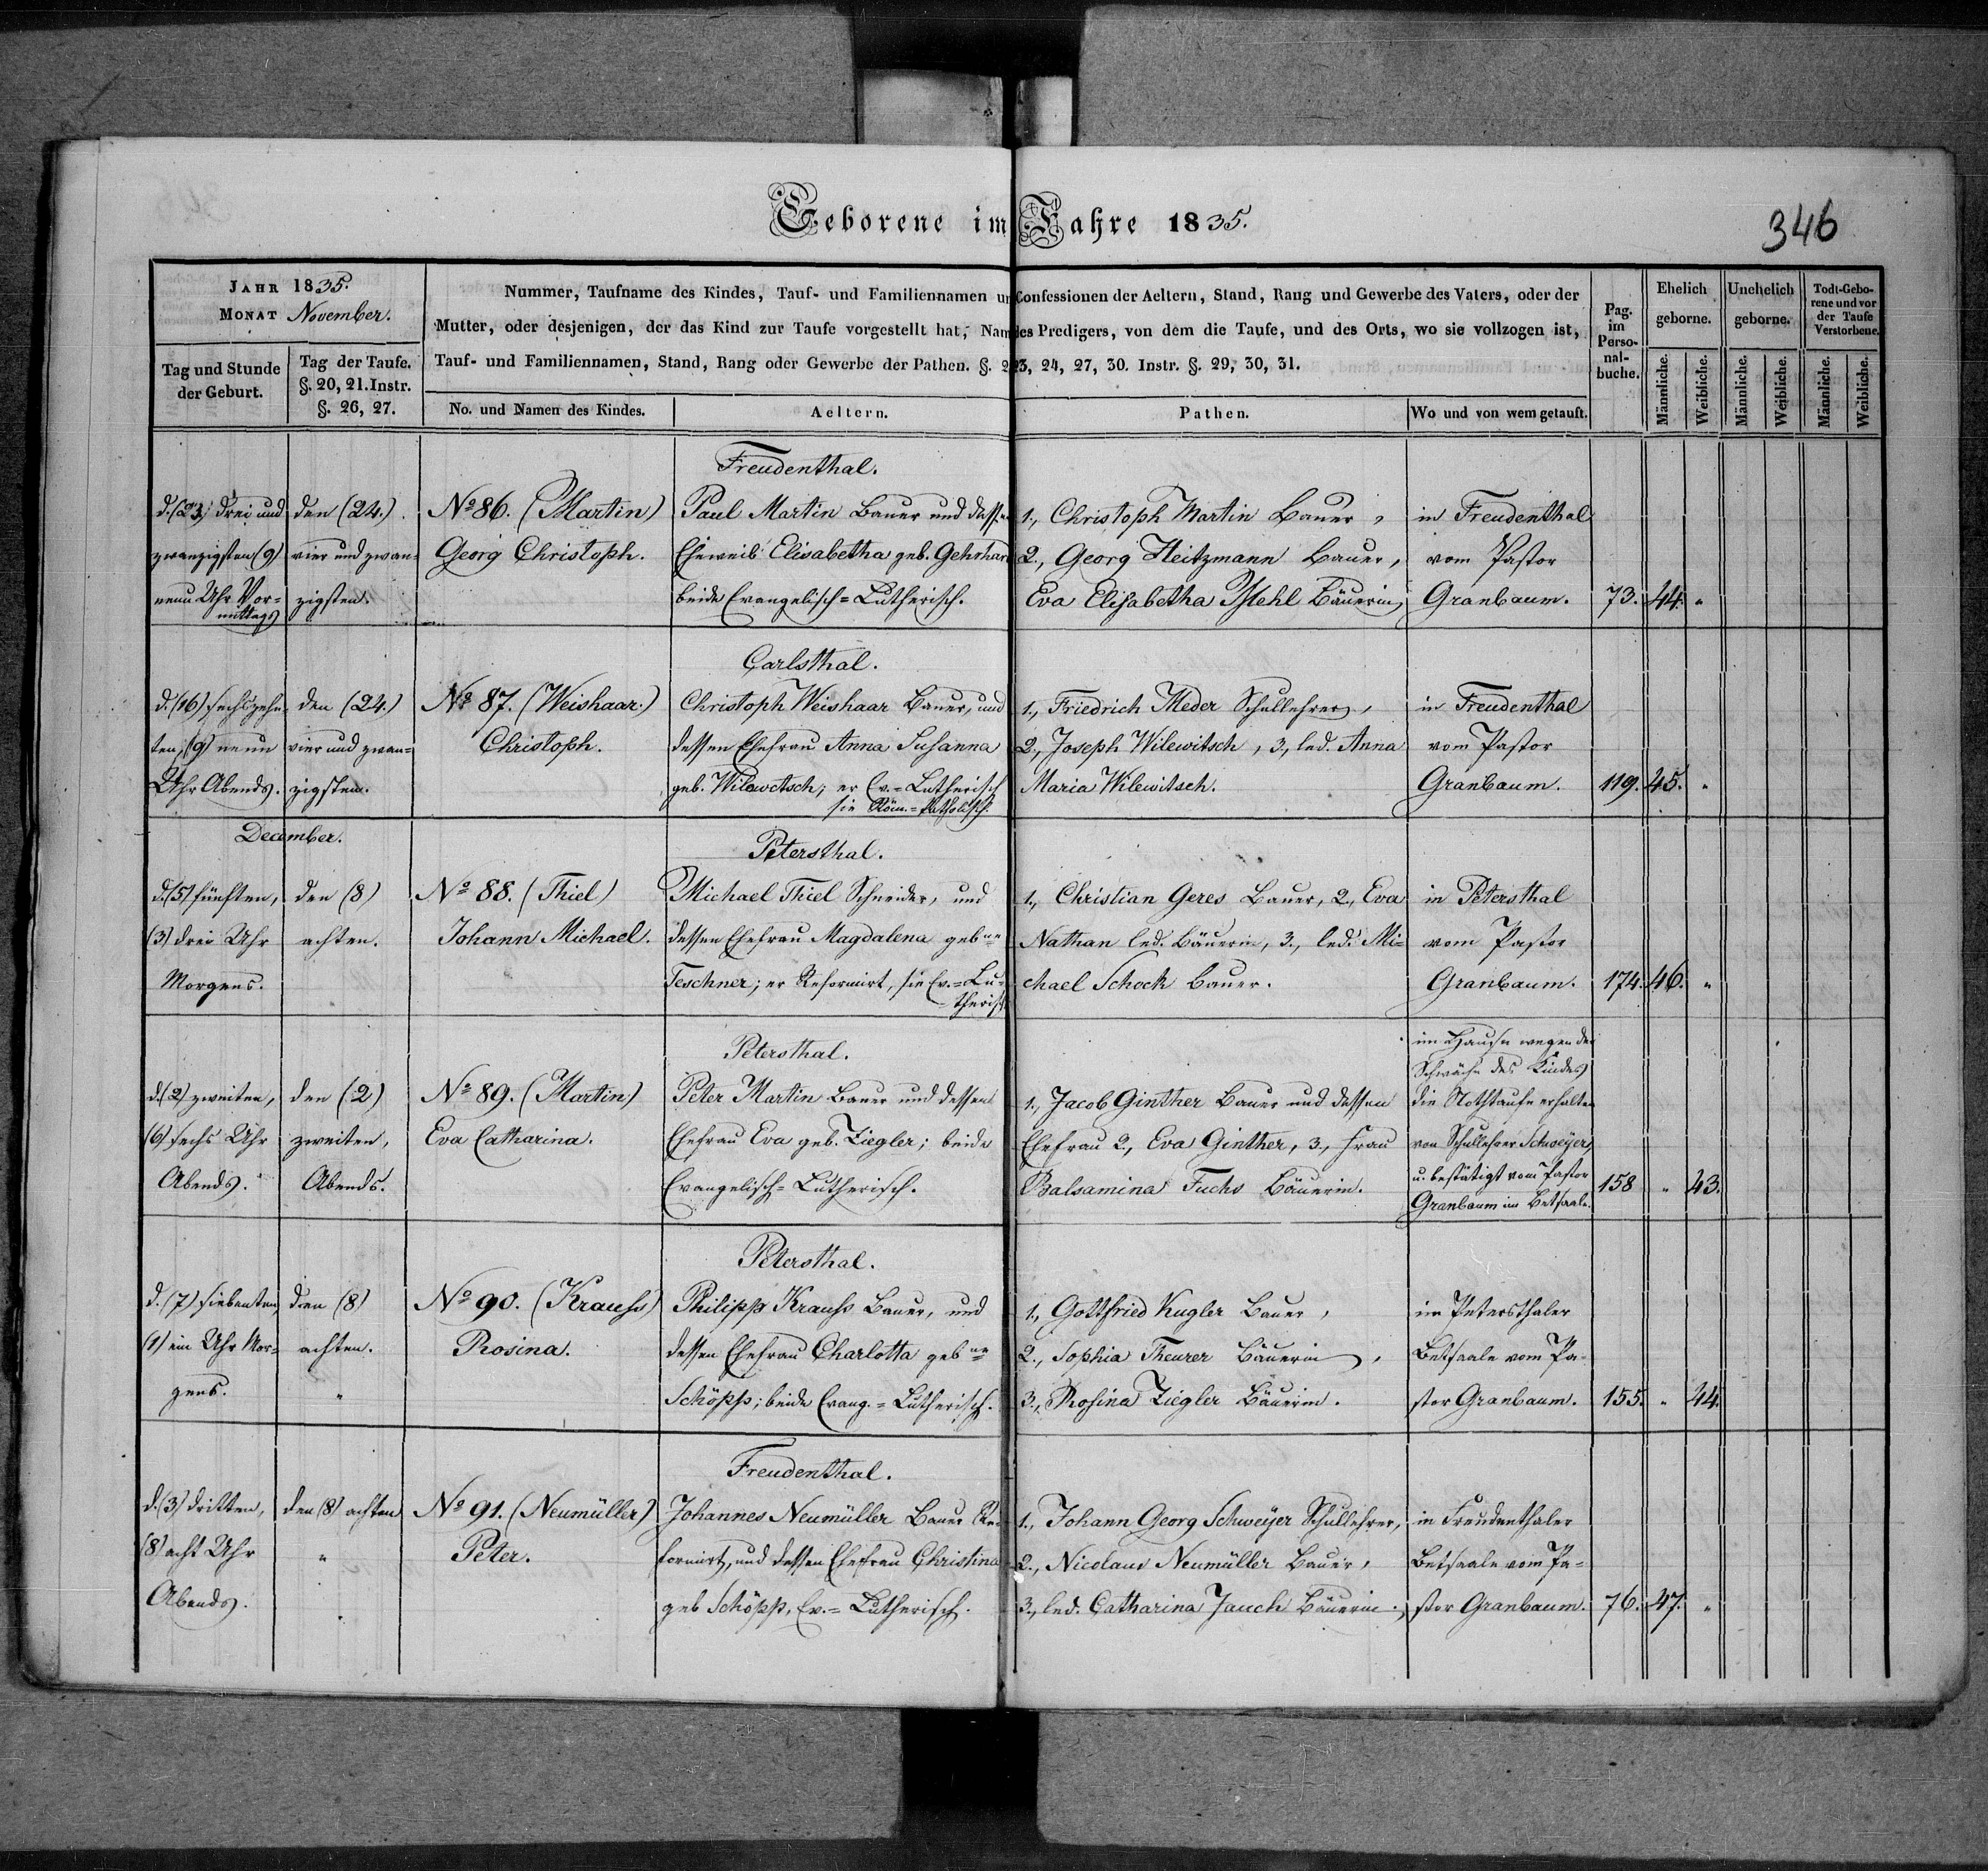 Geborene im Jahre 1835.
346
JAHR 1835.
MONAT November.
Tag und Stunde der Geburt.
Tag der Taufe. §. 20, 21. Instr. §. 26, 27.
Nummer, Taufname des Kindes, Tauf- und Familiennamen un Confessionen der Aeltern, Stand, Rang und Gewerbe des Vaters, oder der
Mutter, oder desjenigen, der das Kind zur Taufe vorgestellt hat, Nam des Predigers, von dem die Taufe, und des Orts, wo sie vollzogen ist,
Tauf- und Familiennamen, Stand, Rang oder Gewerbe der Pathen. §. 23, 24, 27, 30. Instr. §. 29, 30, 31.
No. und Namen des Kindes.
Aeltern.
Pathen.
Wo und von wem getauft.
Pag. im Perso-nal-buche.
Ehelich geborne.
Unehelich geborne.
Todt-Gebo-rene und vor der Taufe Verstorbene.
Männliche. Weibliche. Männliche. Weibliche. Männliche. Weibliche.
Freudenthal.
d. (23) drei und den (24.) No 86. (Martin) Paul Martin Bauer und dessen 1., Christoph Martin Bauer, in Freudenthal
zwanzigsten (9) vier und zwan- Georg Christoph. Eheweib Elisabetha geb. Gehrhard 2., Georg Heitzmann Bauer, vom Pastor
neun Uhr Vor- zigsten. beide Evangelisch=Lutherisch. Eva Elisabetha Bäuerin, Granbaum. 73. 44. "
mittags
Carlsthal.
d. (16) sechszehn- den (24.) No 87. (Weishaar.) Christoph Weishaar Bauer, und 1., Friedrich Meder Schullehrer, in Freudenthal
ten, (9) neun vier und zwan= Christoph. dessen Ehefrau Anna Susanna 2., Joseph Wilewitsch, 3., led. Anna vom Pastor
Uhr Abends. zigsten. geb. Wilewitsch; er Ev.=Lutherisch Maria Wilewitsch. Granbaum. 119. 45. "
sie Röm.=Katholisch.
December.
Petersthal.
d. (5) fünften, den (8) No 88. (Thiel) Michael Thiel Schneider, und 1., Christian Geres Bauer, 2., Eva in Petersthal
(3) drei Uhr achten. Johann Michael. dessen Ehefrau Magdalena gebne Nathan led. Bäuerin, 3., led. Mi= vom Pastor
Morgens. Teschner; er Reformirt, sie Ev.=Lu= chael Schock Bauer. Granbaum. 174. 46. "
therisch
Petersthal.
im Hause wegen der
Schwäche des Kindes
d. (2) zweiten, den (2) No 89. (Martin) Peter Martin Bauer und dessen 1., Jacob Ginther Bauer und dessen die Nothtaufe erhalten
(6) sechs Uhr zweiten, Eva Catharina. Ehefrau Eva geb. Ziegler; beide Ehefrau 2., Eva Ginther, 3., Frau von Schullehrer Schweÿer,
Abends. Abends. Evangelisch=Lutherisch. Balsamina Fuchs Bäuerin. u. bestätigt vom Pastor 158 " 43.
Granbaum im Betsaale.
Petersthal.
d. (7) siebenten, den (8) No 90. (Krauss) Philipp Krauss Bauer, und 1., Gottfried Kugler Bauer, im Petersthaler
(1) ein Uhr Mor= achten. Rosina. dessen Ehefrau Charlotta gebne 2., Sophia Theurer Bäuerin, Betsaale vom Pa-
gens. " Schöpp; beide Evang.=Lutherisch. 3., Rosina Ziegler Bäuerin. stor Granbaum. 155. " 44.
Freudenthal.
d. (3) dritten, den (8) achten No 91. (Neumüller) Johannes Neumüller Bauer Re= 1., Johann Georg Schweÿer Schullehrer, in Freudenthaler
(8) acht Uhr " Peter. formirt, und dessen Ehefrau Christina 2., Nicolaus Neumüller Bauer, Betsaale vom Pa=
Abends. geb Schöpp, Ev.=Lutherisch. 3., led. Catharina Jauch Bäuerin. stor Granbaum. 76. 47. "